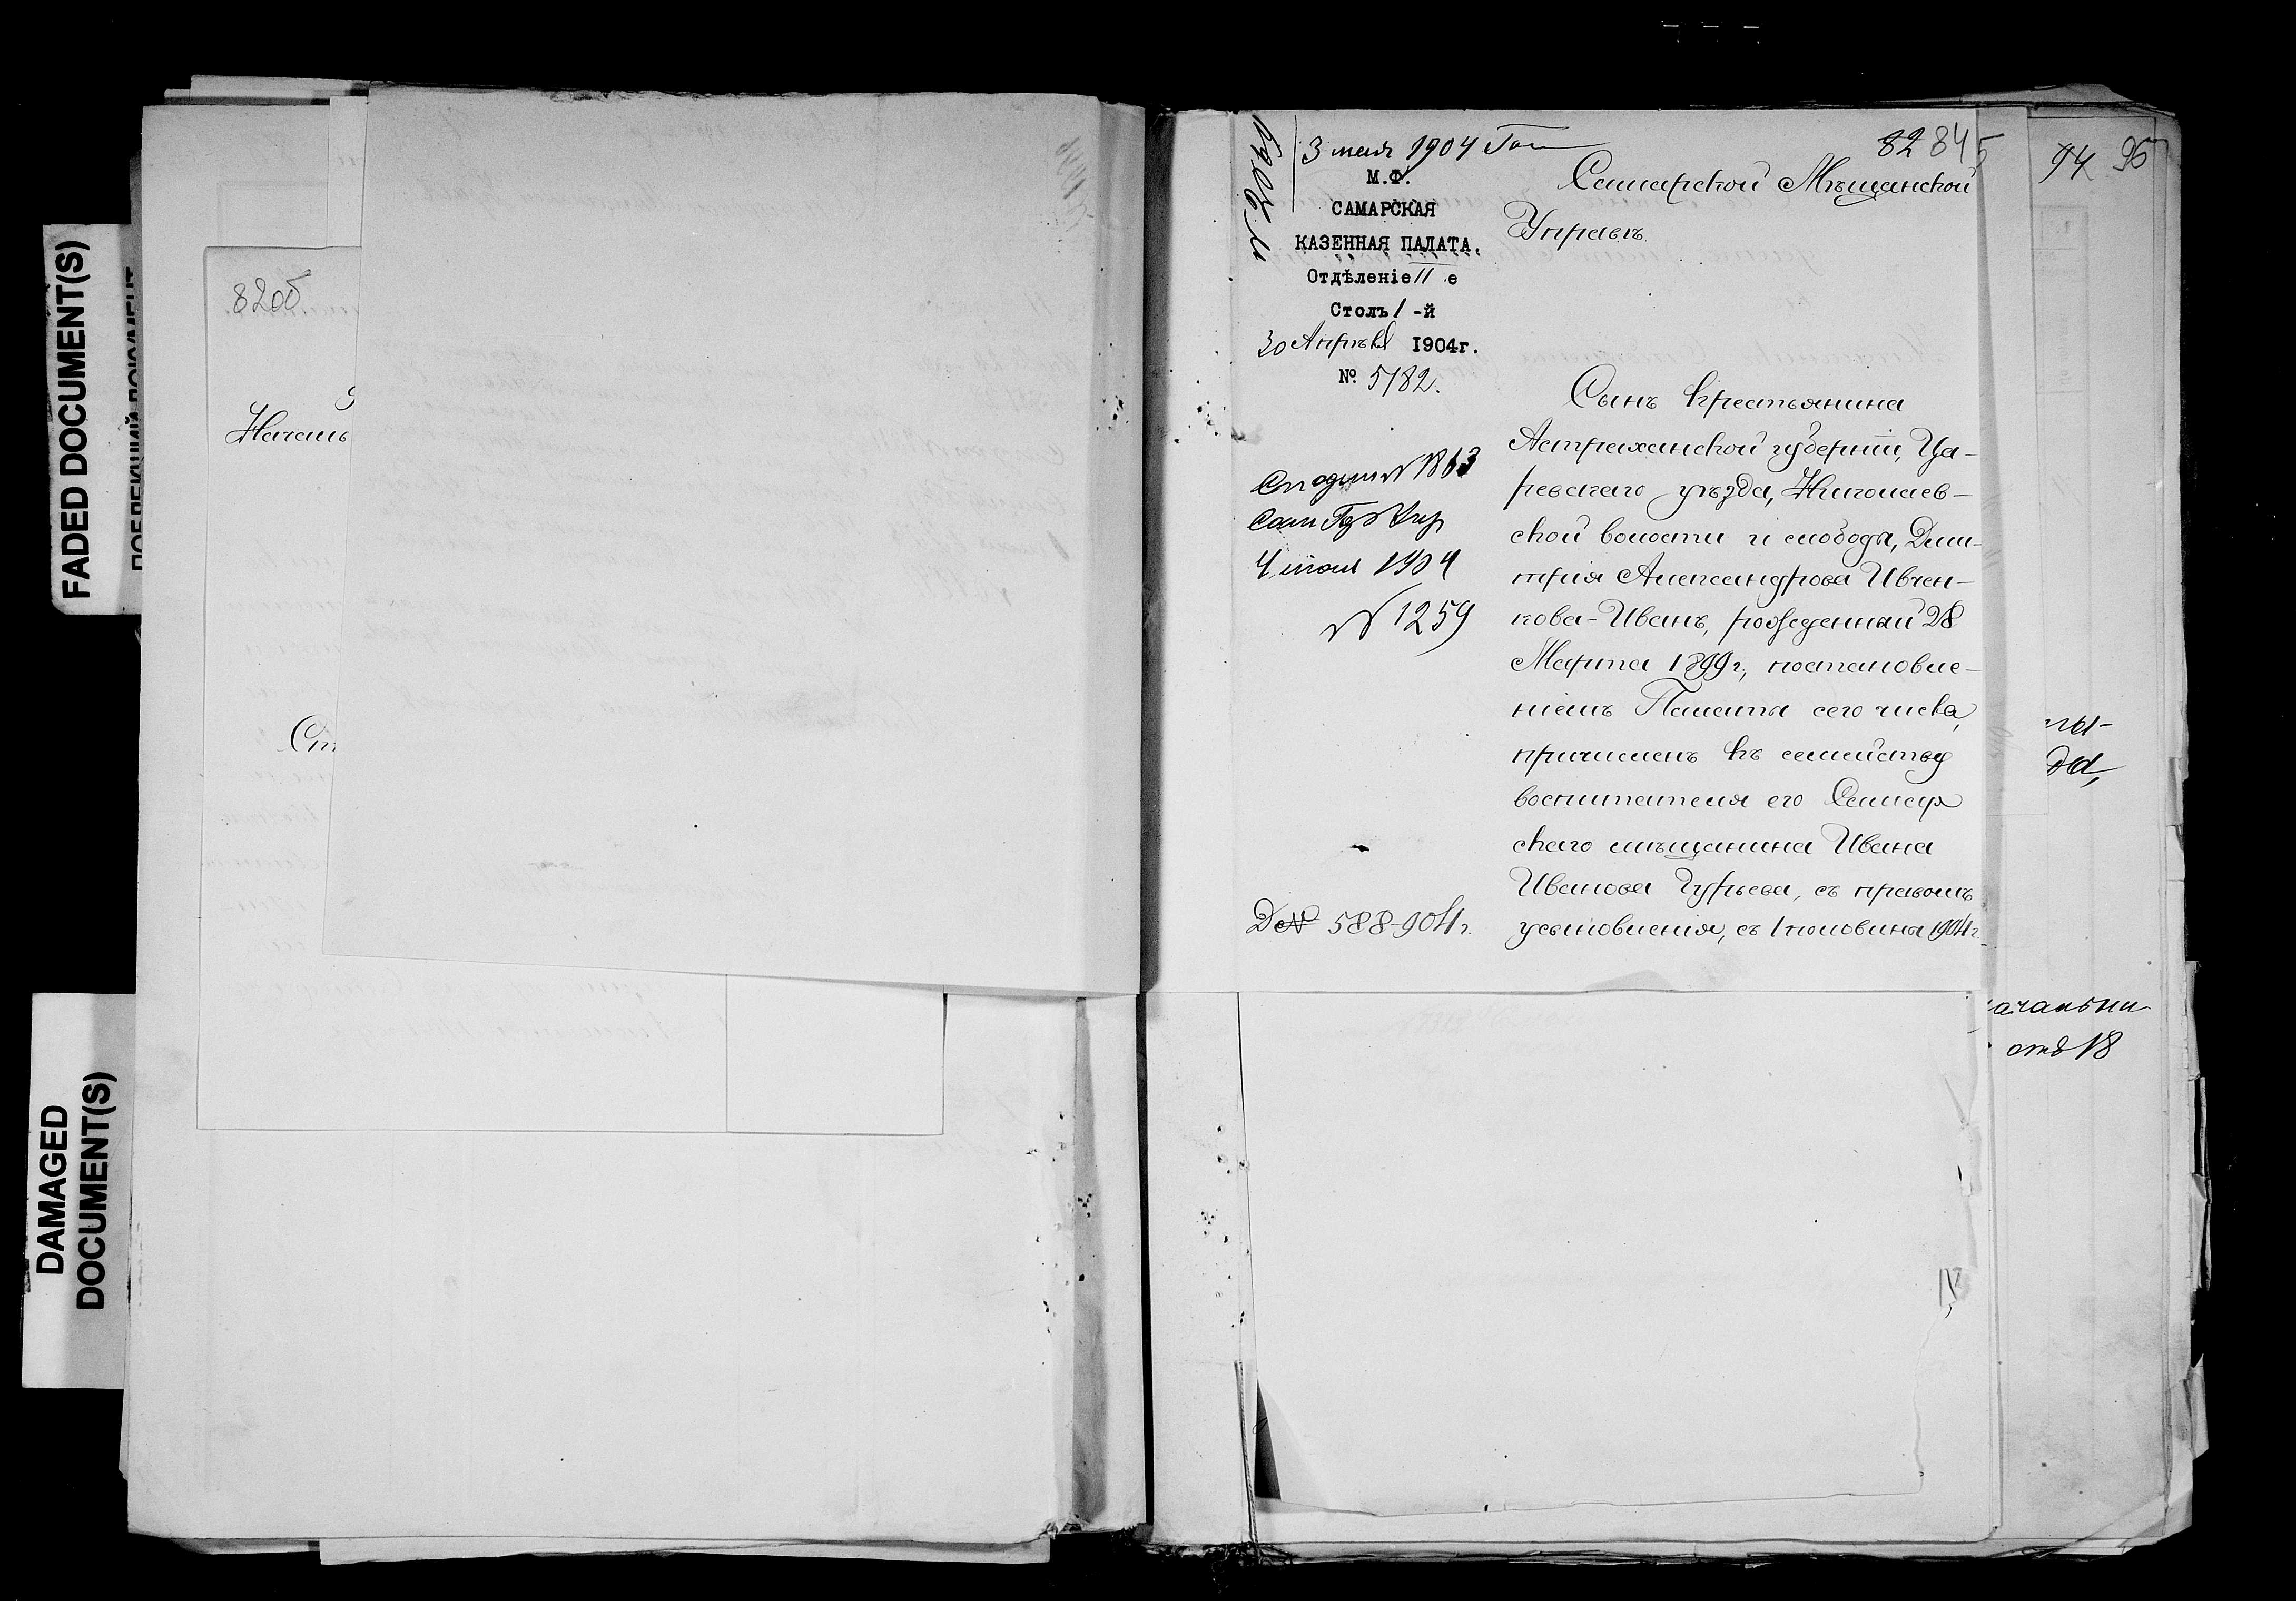 FADED DOCUMENT(S)
DAMAGED
DOCUMENT(S)
82об
Началь
Ст
3 мая 1904
82 84
94 95
М.Ф.
САМАРСКАЯ
КАЗЕННАЯ ПАЛАТА.
Отдѣленіе II е
Столъ 1-й
30 Апрѣля 1904г.
№ 5182.
4 1904
№ 1259
Д№ 588-904г.
Самарской Мѣщанской
Управѣ.
Сынъ крестьянина
Астраханской губерніи, Ца-
ревскаго уѣзда, Николаев-
ской волости и слободы, Дми-
трія Александрова Ивчен-
кова-Иванъ, рожденный 28
Марта 1899г., постановле-
ніемъ Палаты сего числа,
причисленъ къ семейству
воспитателя его Самар
скаго мѣщанина Ивана
Иванова Гурьева, съ правомъ
усыновленія, съ 1 половины 1904г.
ачальни
отд 18